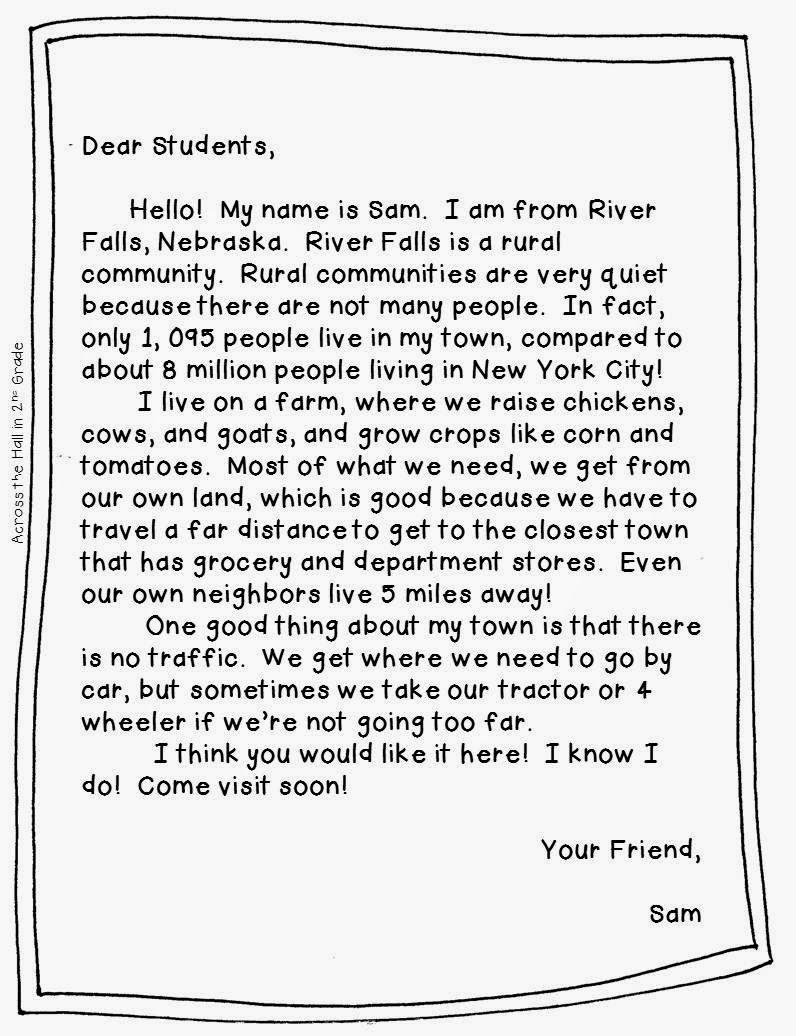 Dear Students,
Hello! My name is Sam. I am from River
Falls, Nebraska. River Falls is a rural
community. Rural communities are very quiet
because there are not many people. In fact,
only 1, 095 people live in my town, compared to
about 8 million people living in New York City!
I live on a farm, where we raise chickens,
cows, and goats, and grow crops like corn and
tomatoes. Most of what we need, we get from
our own land, which is good because we have to
travel a far distance to get to the closest town
that has grocery and department stores. Even
our own neighbors live 5 miles away!
One good thing about my town is that there
is no traffic. We get where we need to go by
car, but sometimes we take our tractor or 4
wheeler if we're not going too far.
I think you would like it here! I know I
do! Come visit soon!
Your Friend,
Sam
Across the Hall in 2nd Grade